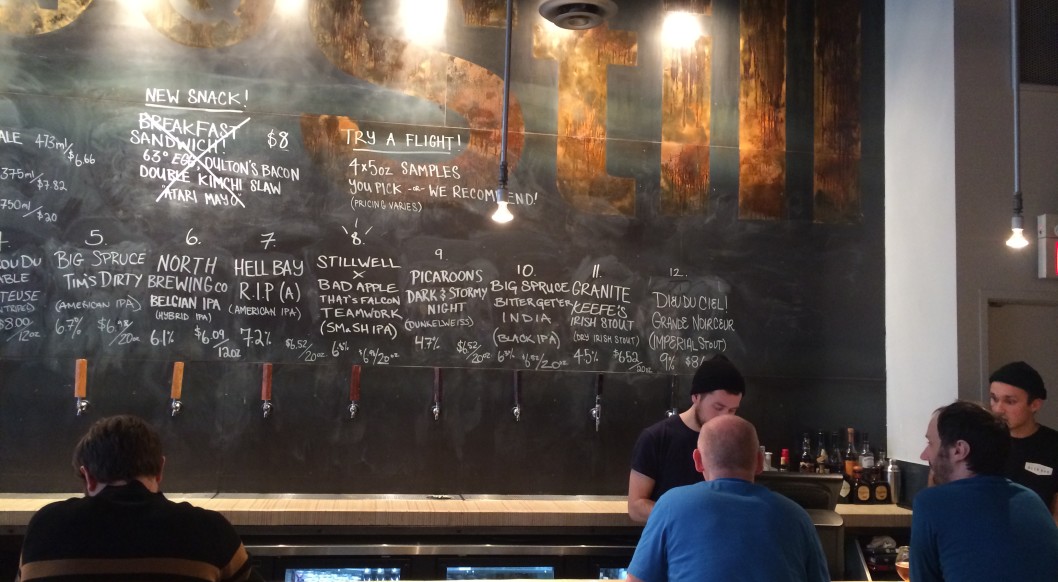 NEW SNACK!
BREAKFAST
SANDWICH! $8
63° EGG, OULTON'S BACON
DOUBLE KIMCHI SLAW
ATARI MAYO
TRY A FLIGHT!
4x5oz SAMPLES
YOU PICK -or- WE RECOMMEND!
(PRICING VARIES)
ALE 473ml/$6.66
375ml/$7.82
750ml/$20
5.
BIG SPRUCE
TIM'S DIRTY
(AMERICAN IPA)
6.7%
20oz
6.
NORTH
BREWING CO
BELGIAN IPA
(HYBRID IPA)
6.1% $6.09/12oz
7.
HELL BAY
R.I.P (A)
(AMERICAN IPA)
7.2% $6.52/20oz
8.
STILLWELL
X
BAD APPLE
THAT'S FALCON
TEAMWORK
(SMaSH IPA)
9.
PICAROONS
DARK & STORMY
NIGHT
(DUNKELWEISS)
4.7% $6.52/20oz
10.
BIG SPRUCE
BITTER GET'ER
INDIA
(BLACK IPA)
11.
GRANITE
KEEFE'S
IRISH STOUT
(DRY IRISH STOUT)
4.5% $6.52/20oz
12.
DIEU DU CIEL!
GRANDE NOIRCEUR
(IMPERIAL STOUT)
9% $8/